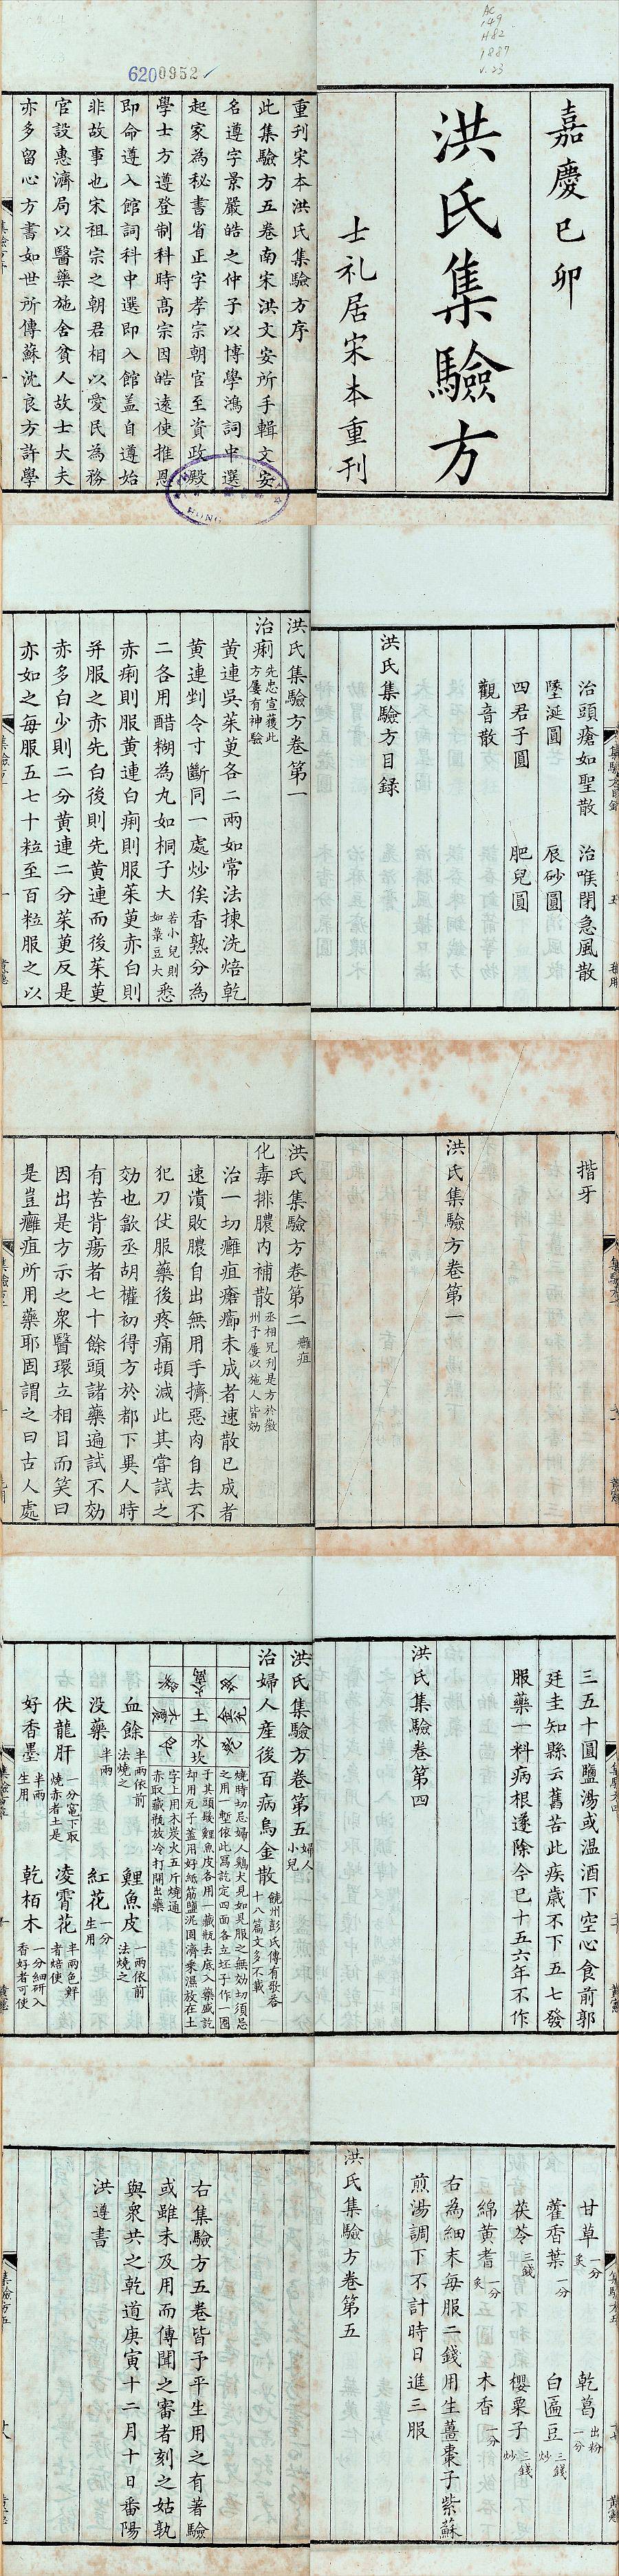 AC
149
H82
1887
V.23
嘉慶己卯
洪氏集驗方
士礼居宋本重刊
6200952
重刊宋本洪氏集驗方序
此集驗方五卷南宋洪文安所手輯文安
名遵字景嚴皓之仲子以博學鴻詞中選
起家為秘書省正字孝宗朝官至資政殿
學士方遵登制科時高宗因皓遠使推恩
即命遵入館詞科中選即入館盖自遵始
非故事也宋祖宗之朝君相以愛民為務
官設惠濟局以醫藥施舍貧人故士大夫
亦多留心方書如世所傳蘇沈良方許學
HONG
治頭瘡如聖散　治喉閉急風散
墜涎圓　辰砂圓
四君子圓　肥兒圓
觀音散
洪氏集驗方目録
洪氏集驗方卷第一
治痢先忠宣獲此方屢有神驗
黄連吳茱萸各二兩如常法揀洗焙乾
黄連剉令寸斷同一處炒俟香熟分為
二各用醋糊為丸如桐子大若小兒則如菉豆大悉
赤痢則服黄連白痢則服茱萸赤白則
并服之赤先白後則先黄連而後茱萸
赤多白少則二分黄連一分茱萸反是
亦如之每服五七十粒至百粒服之以
揩牙
洪氏集驗方卷第一
洪氏集驗方卷第二　癰疽
化毒排膿内補散丞相兄刋是方於徽州予屢以施人皆効
治一切癰疽瘡癤未成者速散已成者
速潰敗膿自出無用手擠惡肉自去不
犯刀仗服藥後疼痛頓減此其嘗試之
効也歙丞胡權初得方於都下異人時
有苦背瘍者七十餘頭諸藥遍試不効
因出是方示之衆醫環立相目而笑曰
是豈癰疽所用藥耶固謂之曰古人處
三五十圓鹽湯或温酒下空心食前郭
廷圭知縣云舊苦此疾歲不下五七發
服藥一料病根遂除今已十五六年不作
洪氏集驗卷第四
洪氏集驗方卷第五婦人小兒
治婦人産後百病烏金散饒州彭氏傳有歌荅十八篇文多不載
土
水坎
燒時切忌婦人鷄犬見如見服之無効切須忌
之用一塹依此寫訖定四面各立坯子作一圈
于其頭髮鯉魚皮各用一藏瓶去底入藥盛訖
却用瓦子蓋用好紙筋鹽泥固濟乘濕放在土
字上用木炭火五斤燒通
赤取藏瓶放冷打開出藥
血餘半兩依前法燒之　鯉魚皮一兩依前法燒之
没藥半兩　紅花一分生用
伏龍肝一分竃下取燒赤者土是　凌霄花半兩色鮮者焙使
好香墨半兩生用　乾栢木一分細研入香好者可使
甘草一分炙　乾葛出粉一分
藿香葉一分　白匾豆三錢炒
茯苓三錢　櫻粟子三錢炒
綿黄耆一分炙　木香一分
右為細末每服二錢用生薑棗子紫蘇
煎湯調下不計時日進三服
洪氏集驗方卷第五
右集驗方五卷皆予平生用之有著驗
或雖未及用而傳聞之審者刻之姑孰
與衆共之乾道庚寅十二月十日番陽
洪遵書